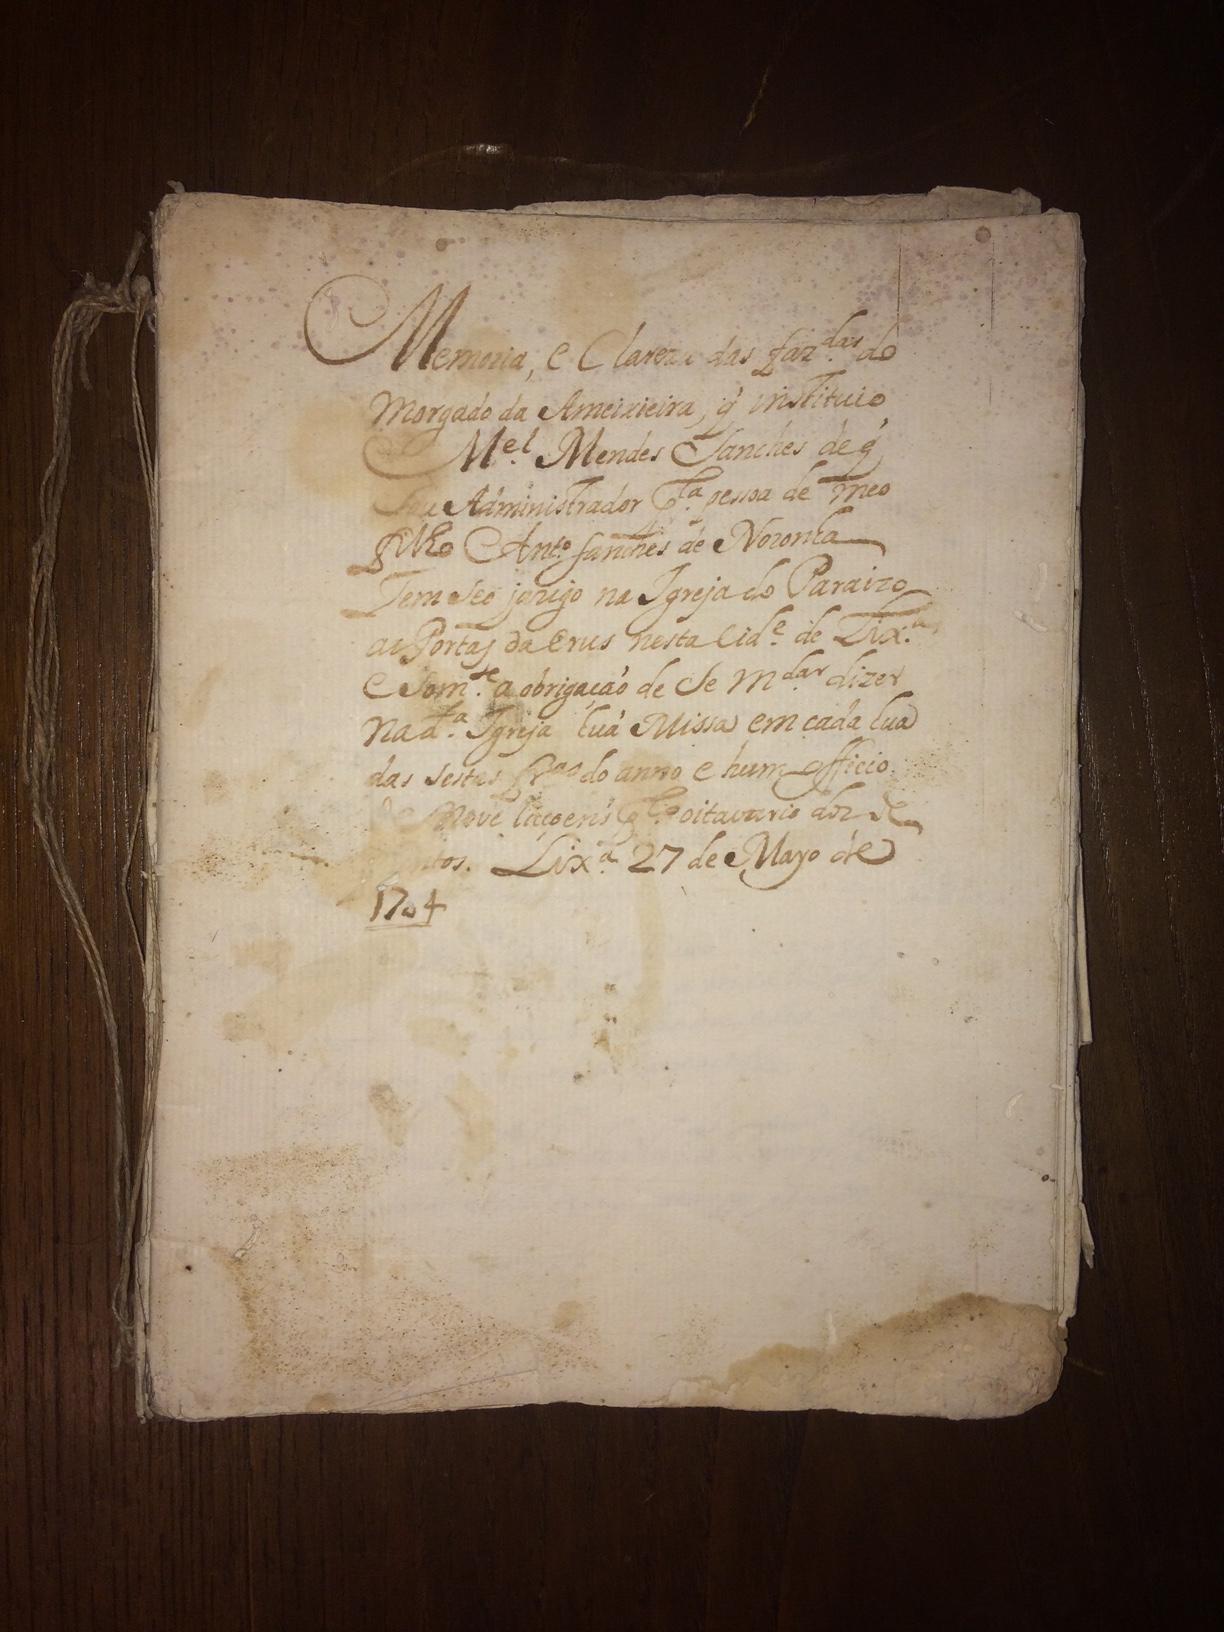 Memoria, e Clareza das faz.das do
Morgado da Ameixieira, q̃ instituio
M.el Mendes Sanches de q̃
sou Administrador p.la pessoa de meo
filho Ant.o sanches de Noronha
Tem seo jazigo na Igreja do Paraizo
as Portas da Crus nesta Cid.e de Lix.a
e Som.te a obrigação de se m.dar dizer
na d.ta Igreja hũa Missa em cada hũa
das sestas fr.as do anno e hum officio
Nove liçoens p.lo oitavario dos de
Lix.a 27 de Mayo de
1704